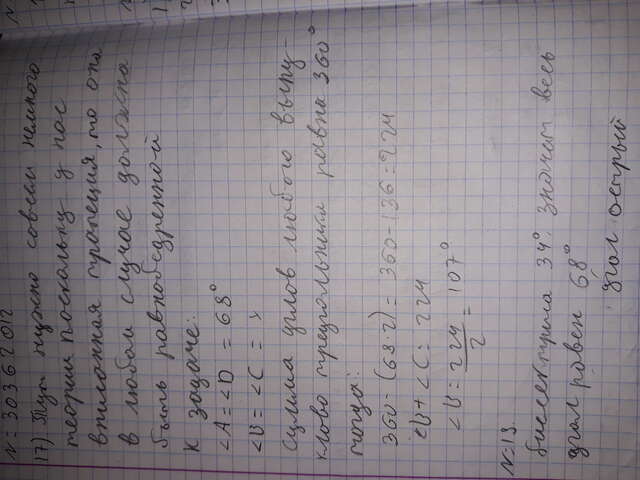 N=30367012
17) Тут нужно совсем немного
теории поскольку у нас
вписанная трапеция, то она
в любом случае должна
быть равнобедренной
К задаче:
∠A=∠D = 68°
∠B= ∠C = x
Сумма углов любого выпу-
клово треугольника равна 360°
тогда:
360-(68·2)= 360-136=224
∠B+∠C= 224
∠B= 224/2 = 107°
N=19.
биссектриса 34° значит весь
угол равен 68°
угол острый